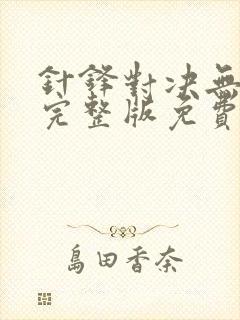 針鋒對决無
完整版免費
島田香奈